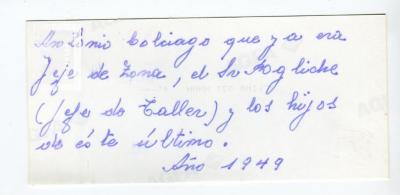 Antonio Colciago que ya era
Jefe de Zona, el Sr Fogliche
(Jefe de Taller) y los hijos
de éste último.
Año 1949